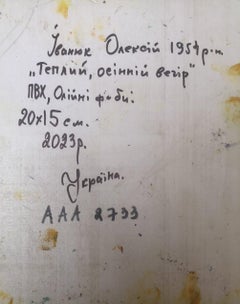 Іванюк Олексій 1954р.н.
„Теплий, осінній вечір"
ПВХ, Олійні фарби.
20х15 см.
2023р.
Україна.
ААА 2733